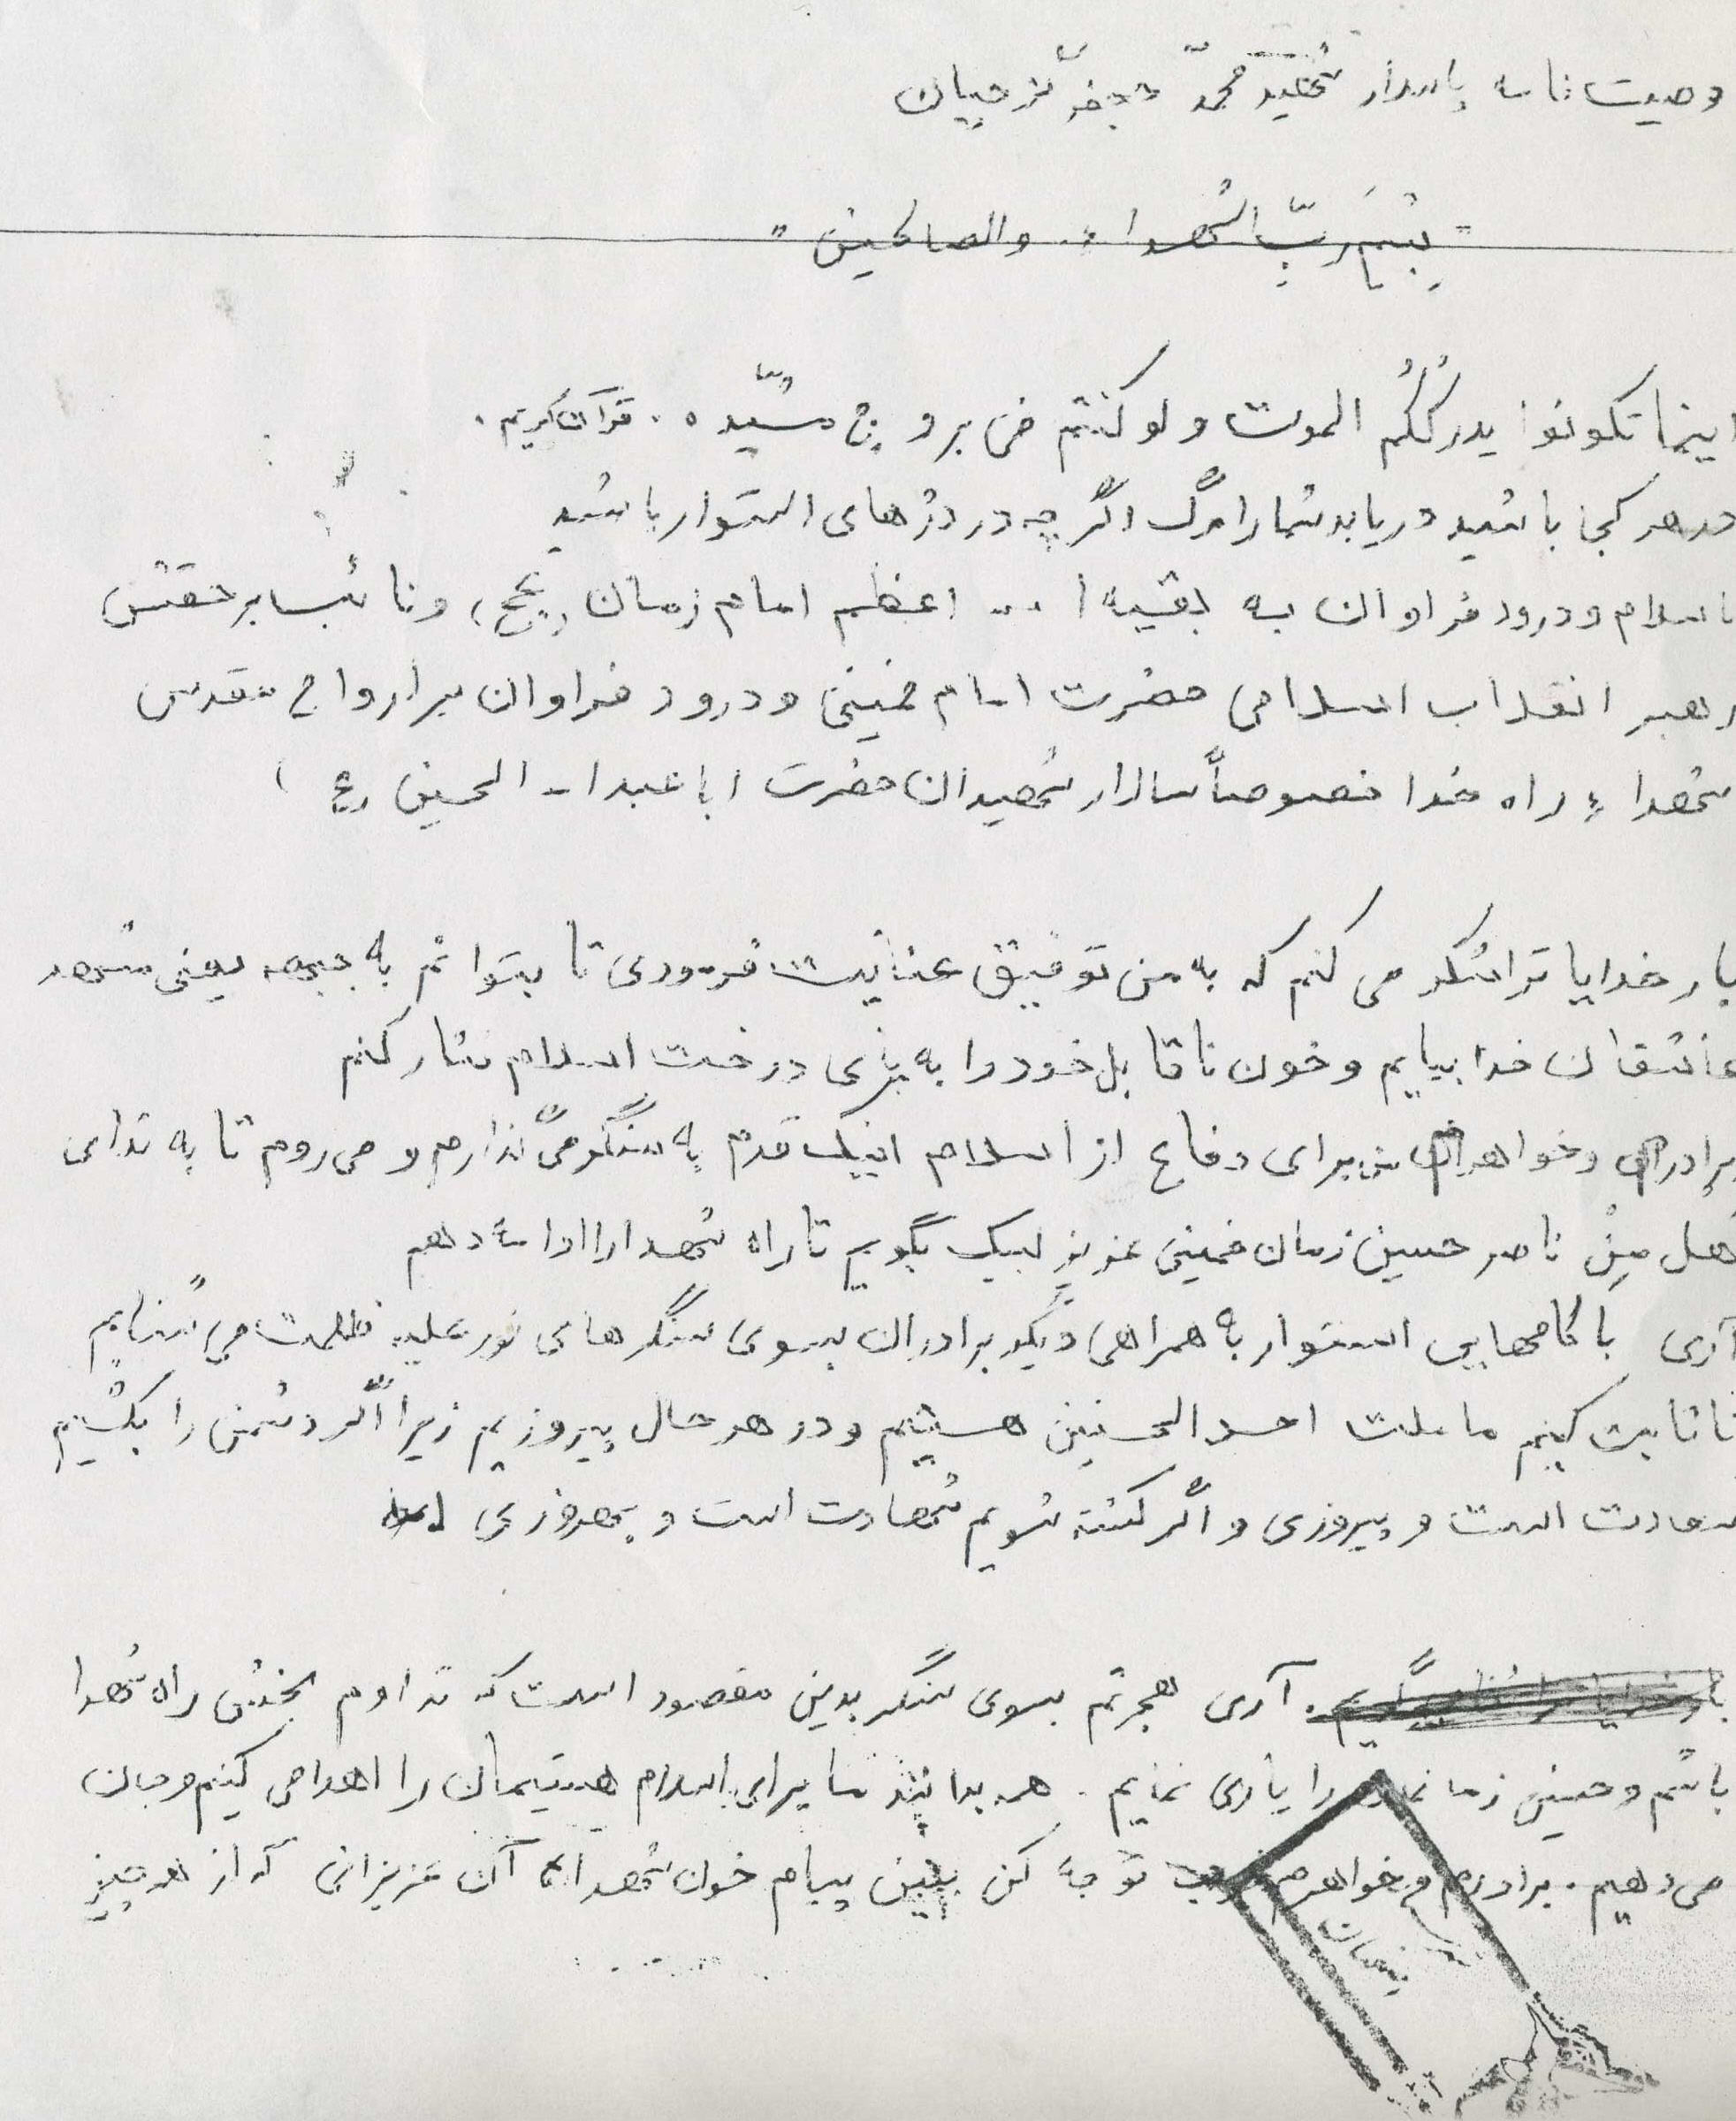 وصیت نامه پاسدار شهید محمّد جعفر نرجیبان
"بِسْمِ رَبِّ الشُهداء والصالحین"
اینما تکونوا یدرکُکُم الموت و لو کنتم فی بروج مشیّده . قرآن کریم .
در هر کجا باشید دریابد شما را مرگ اگر چه در دژهای استوار باشید
با سلام و درود فراوان به بقیه ا... اعظم امام زمان (عج) و نائب برحقش
رهبر انقلاب اسلامی حضرت امام خمینی و درود فراوان بر ارواح مقدس
شهداء راه خدا خصوصاً سالار شهیدان حضرت اباعبدا.. الحسین (ع)
بار خدایا ترا شکر می کنم که به من توفیق عنایت فرمودی تا بتوانم به جبهه یعنی مشهد
عاشقان خدا بیایم و خون ناقابل خود را به پای درخت اسلام نثار کنم
برادران و خواهران من برای دفاع از اسلام اینک قدم به سنگر می گذارم و می روم تا به ندای
هل مِنْ ناصر حسین زمان خمینی عزیز لبیک بگویم تا راه شهدا را ادامه دهم
آری با گامهایی استوار به همراهی دیگر برادران بسوی سنگرهای نور علیه ظلمت می شتابم
تا ثابت کنیم ما ملت احد الحسنین هستیم و در هر حال پیروزیم زیرا اگر دشمن را بکشیم
سعادت است و پیروزی و اگر کشته شویم شهادت است و بهروزی
آری هجرتم بسوی سنگر بدین مقصود است که تداوم بخش راه شهدا
باشم و حسین زمانم را یاری نمایم . همه بدانند ما برای اسلام هستیمان را اهدا می کنیم و جان
می دهیم . برادرم و خواهرم خوب توجه کن ببین پیام خون شهدا آن عزیزانی که از هر چیز